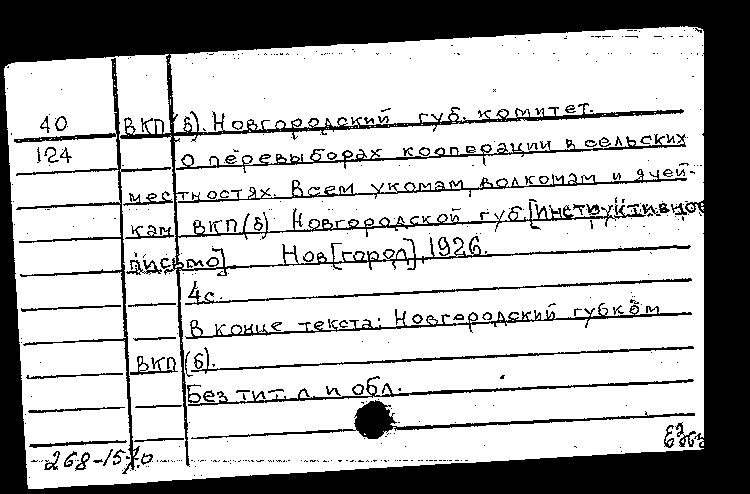 40 ВКП(б). Новгородский губ. комитет.
124 О перевыборах кооперации в сельских
местностях. Всем укомам, волкомам и ячей-
кам ВКП(б) Новгородской губ. [Инструктивное
письмо] Нов[город], 1926.
4 с.
В конце текста: Новгородский губком
ВКП(б).
Без тит. л. и обл.
268-15